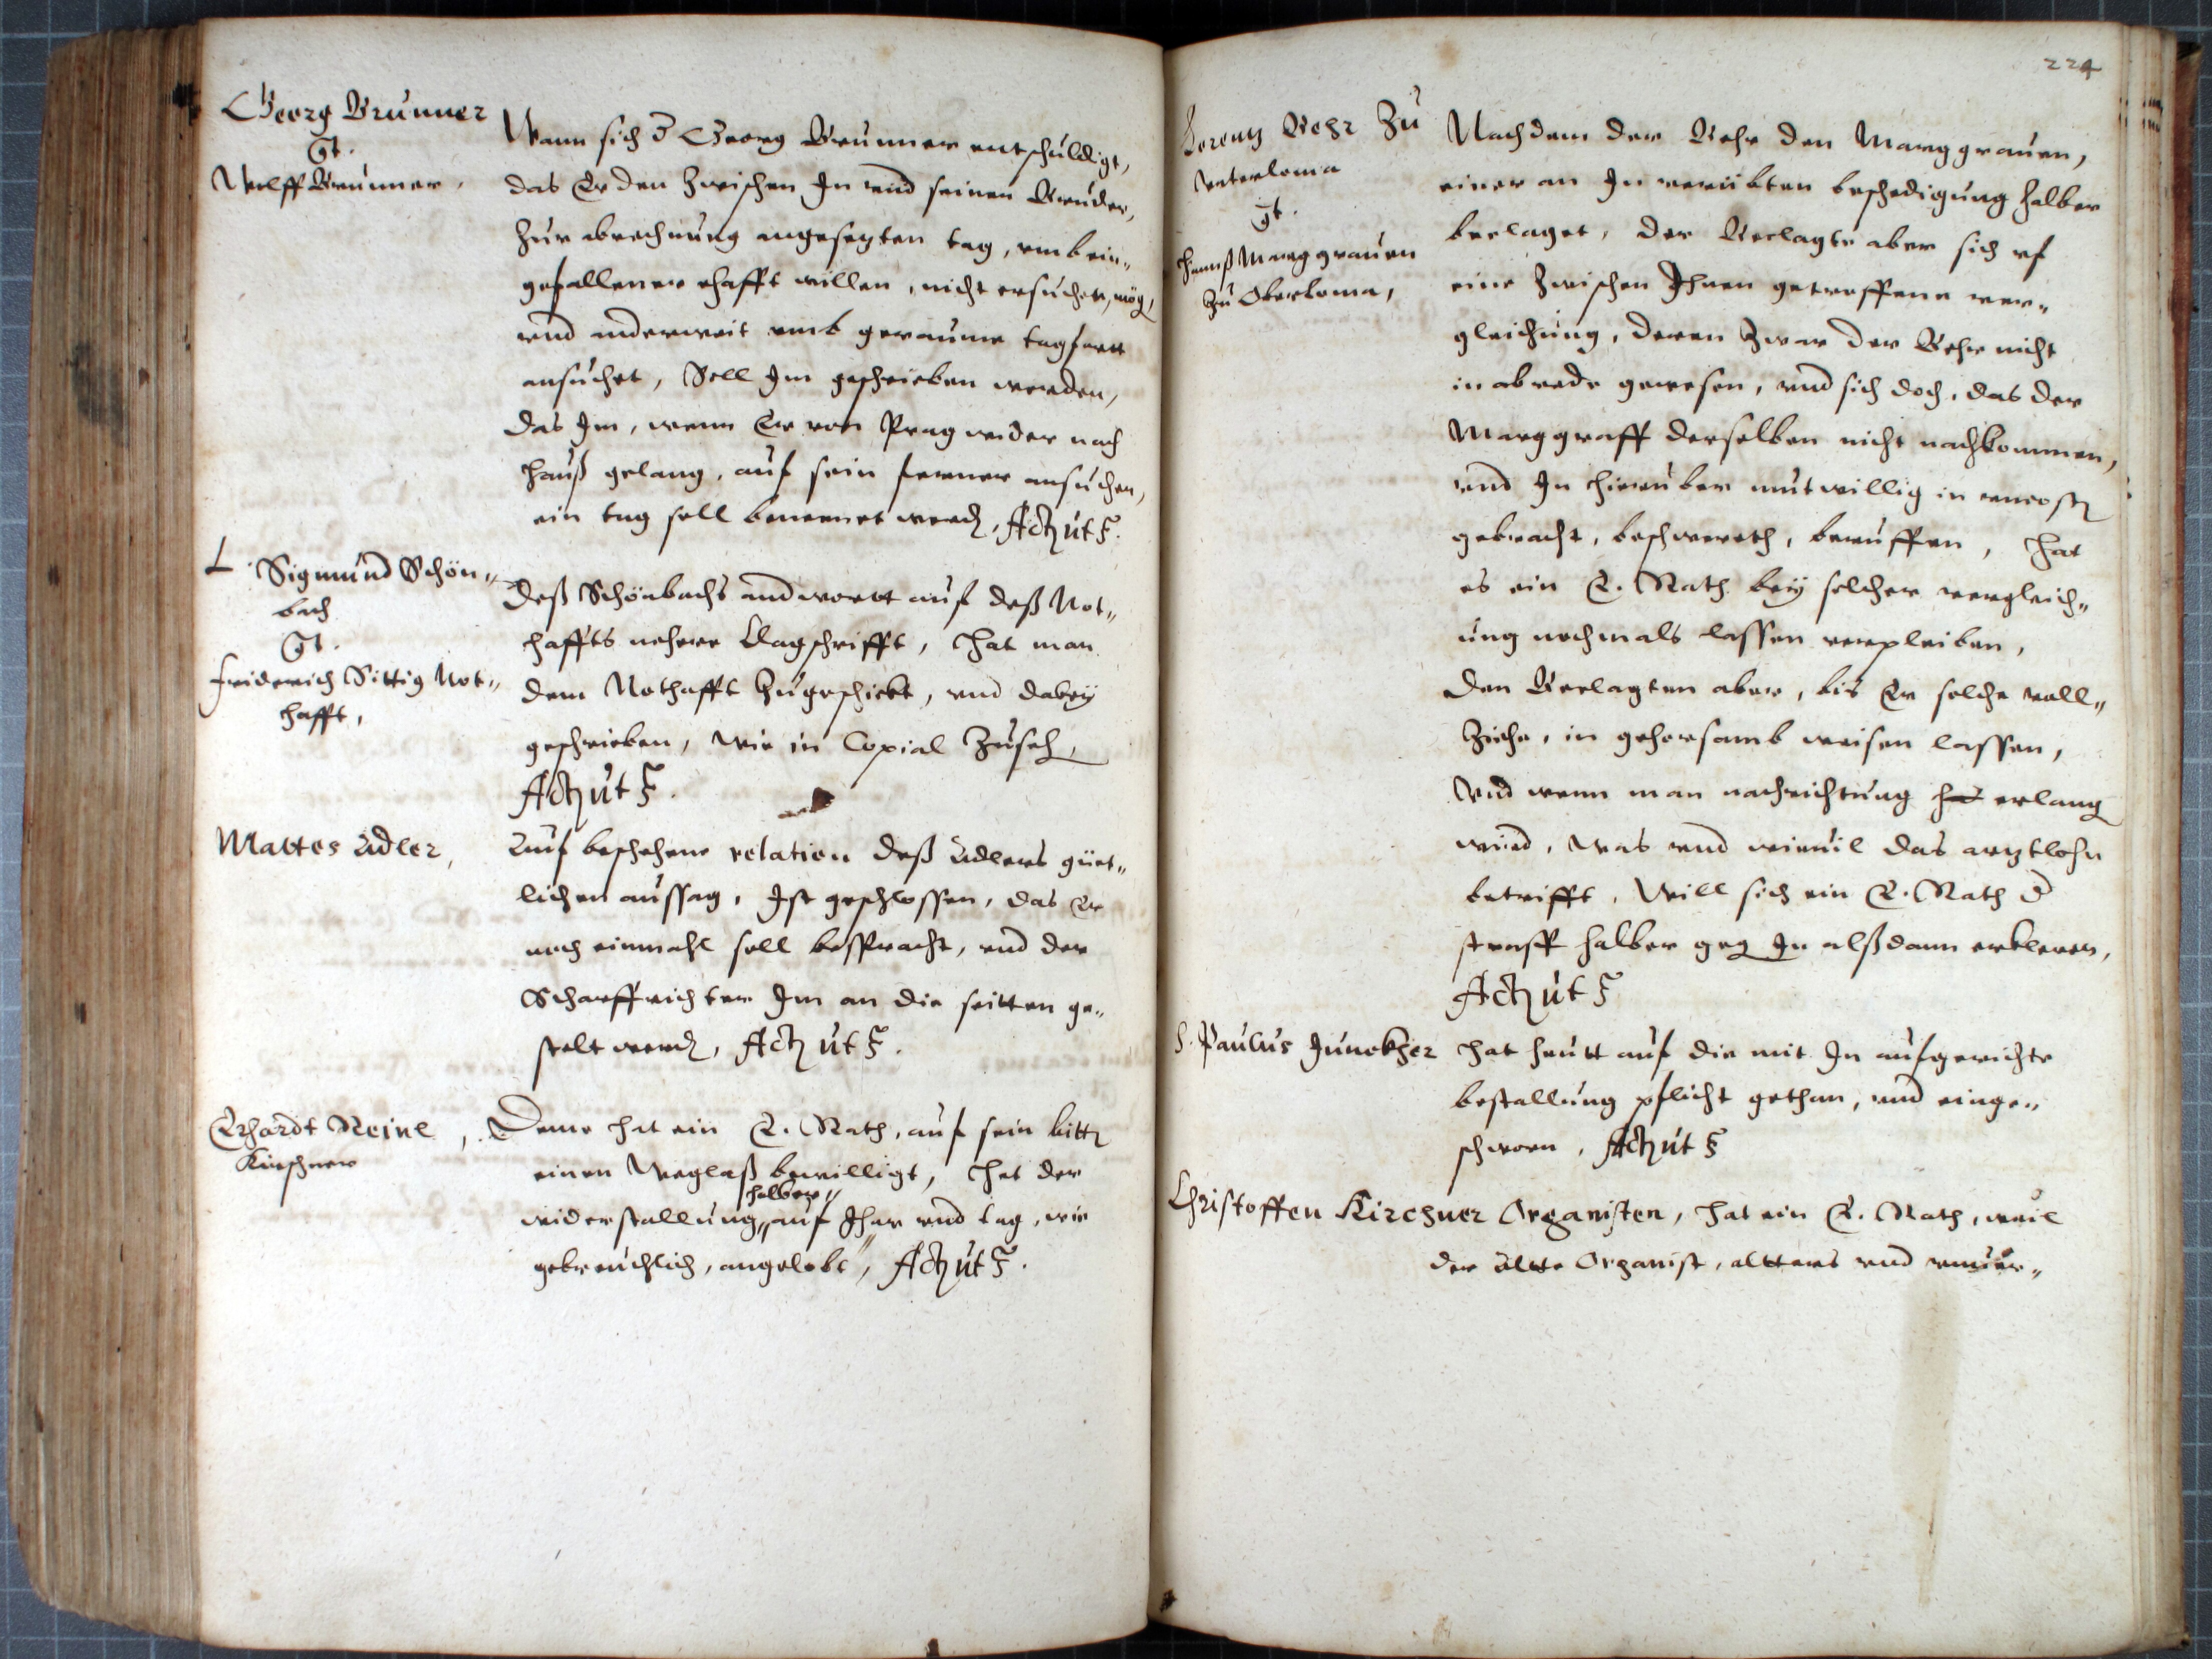 Georg Brunner
Gt.
Wolff Brunner,
Wann sich d Georg Brunner entschuldigt,
das Er den zwischen Im vnd seinen Bruder,
zur abrechnung angesezten tag, vmb ein„
gefallener ehafft willen, nicht ersuchen, mög,
vnd anderweit vmb geraume tagfartt
ansuchet, Soll Im geschrieben werden,
das Im, wenn Er von Prag wider nach
hauß gelang, auf sein ferner ansuchen,
ein tag soll benennet werd, Act ut s.
L. Sigmund Schön„
bach
Gt.
Friderich Sittig Not„
hafft,
Deß Schönbachs andwortt auf deß Not„
haffts nehere Clagschrifft, Hat man
dem Nothafft zugeschickt, vnd dabey
geschrieben, wie in Copial zuseh,
Act ut s.
Mattes Adler,
Auf beschehene relation deß Adlers güet„
lichen aussag, Ist geschlossen, das Er
noch einmahl soll besspracht, vnd der
Scharffrichter Im an die seitten ge„
stelt werd, Act ut s.
Erhardt Reinl,
Kürschner
Deme hat ein E. Rath, auf sein bitt
einen Weglaß bewilligt, Hat der
halber„
widerstallung„ auf Ihar vnd tag, wie
gebreuchlich, angelobt„, Act ut s.
224
Lorentz Behr zu
Vnterloma
Gt.
Hannß Marggrauen
zu Oberloma,
Nachdem der Behr den Marggrauen,
einer an Im verübten beschedigung halber
beclaget, der Beclagte aber sich vf
eine zwischen Ihnen getroffene ver„
gleichung, deren zwar der Behr nicht
in abrede gewesen, vnd sich doch, das der
Marggraff derselben nicht nachkommen,
vnd In hierüber mutwillig in vncost
gebracht, beschwereth, beruffen, Hat
es ein E. Rath bey solcher vergleich„
ung nochmals lassen verpleiben,
Den Beclagten aber, bis Er solche voll„
ziehe, in gehorsamb weisen lassen,
Vnd wenn man nachrichtung erlang
würd, Was vnd wieuil das arztlohn
betrifft, Will sich ein E. Rath d
straff halber geg In alßdann erkleren,
Act ut s
H. Paulus Junckher
Hat heutt auf die mit Im aufgerichte
bestallung pflicht gethan, vnd einge„
schworn, Act ut s
Christoffen Kirchner Organisten, Hat ein E. Rath, weil
der alte Organist, altters vnd vnuer„